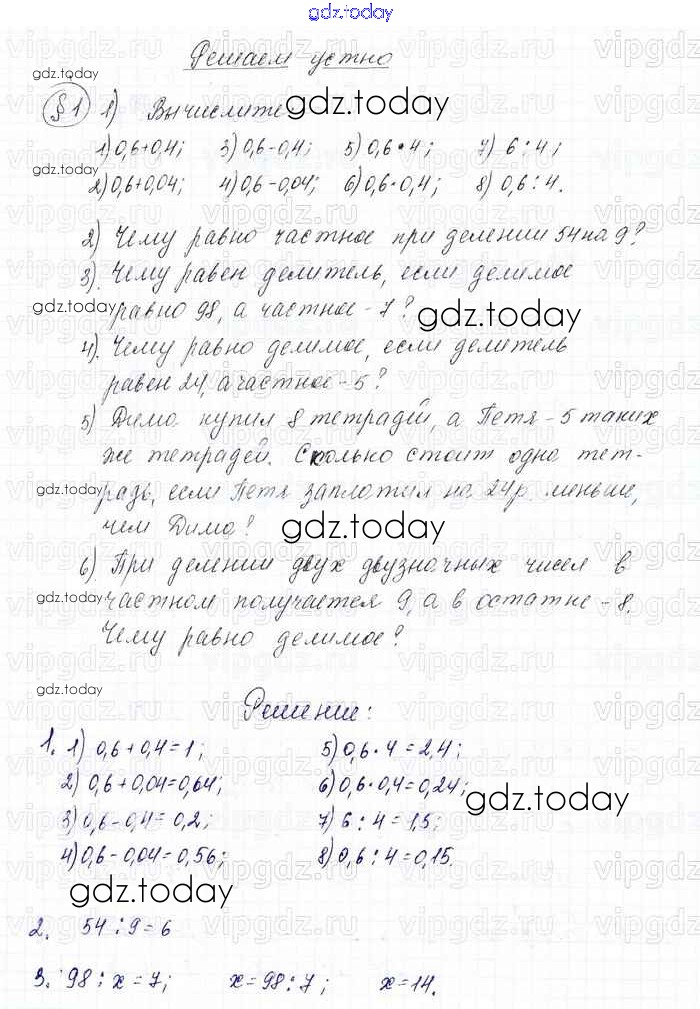 gdz.today
Решаем устно
gdz.today
§1 1) Вычислите gdz.today
1) 0,6+0,4; 3) 0,6-0,4; 5) 0,6•4; 7) 6:4;
2) 0,6+0,04; 4) 0,6-0,04; 6) 0,6•0,4; 8) 0,6:4.
gdz.today
2) Чему равно частное при делении 54 на 9?
3). Чему равен делитель, если делимое
равно 98, а частное - 7?
gdz.today gdz.today
4). Чему равно делимое, если делитель
равен 24, а частное - 5?
5) Дима купил 8 тетрадей, а Петя - 5 таких
же тетрадей. Сколько стоит одна тет-
радь, если Петя заплатил на 24р. меньше,
gdz.today
чем Дима?
gdz.today
6). При делении двух двузначных чисел в
частном получается 9, а в остатке - 8.
gdz.today
Чему равно делимое?
gdz.today
Решение:
1. 1) 0,6+0,4=1; 5) 0,6•4=2,4;
2) 0,6+0,04=0,64; 6) 0,6•0,4=0,24;
gdz.today
3) 0,6-0,4=0,2; 7) 6:4=1,5;
4) 0,6-0,04=0,56; 8) 0,6:4=0,15.
gdz.today
2. 54:9=6
3. 98:x=7; x=98:7; x=14.
gdz.today
vipgdz.ru